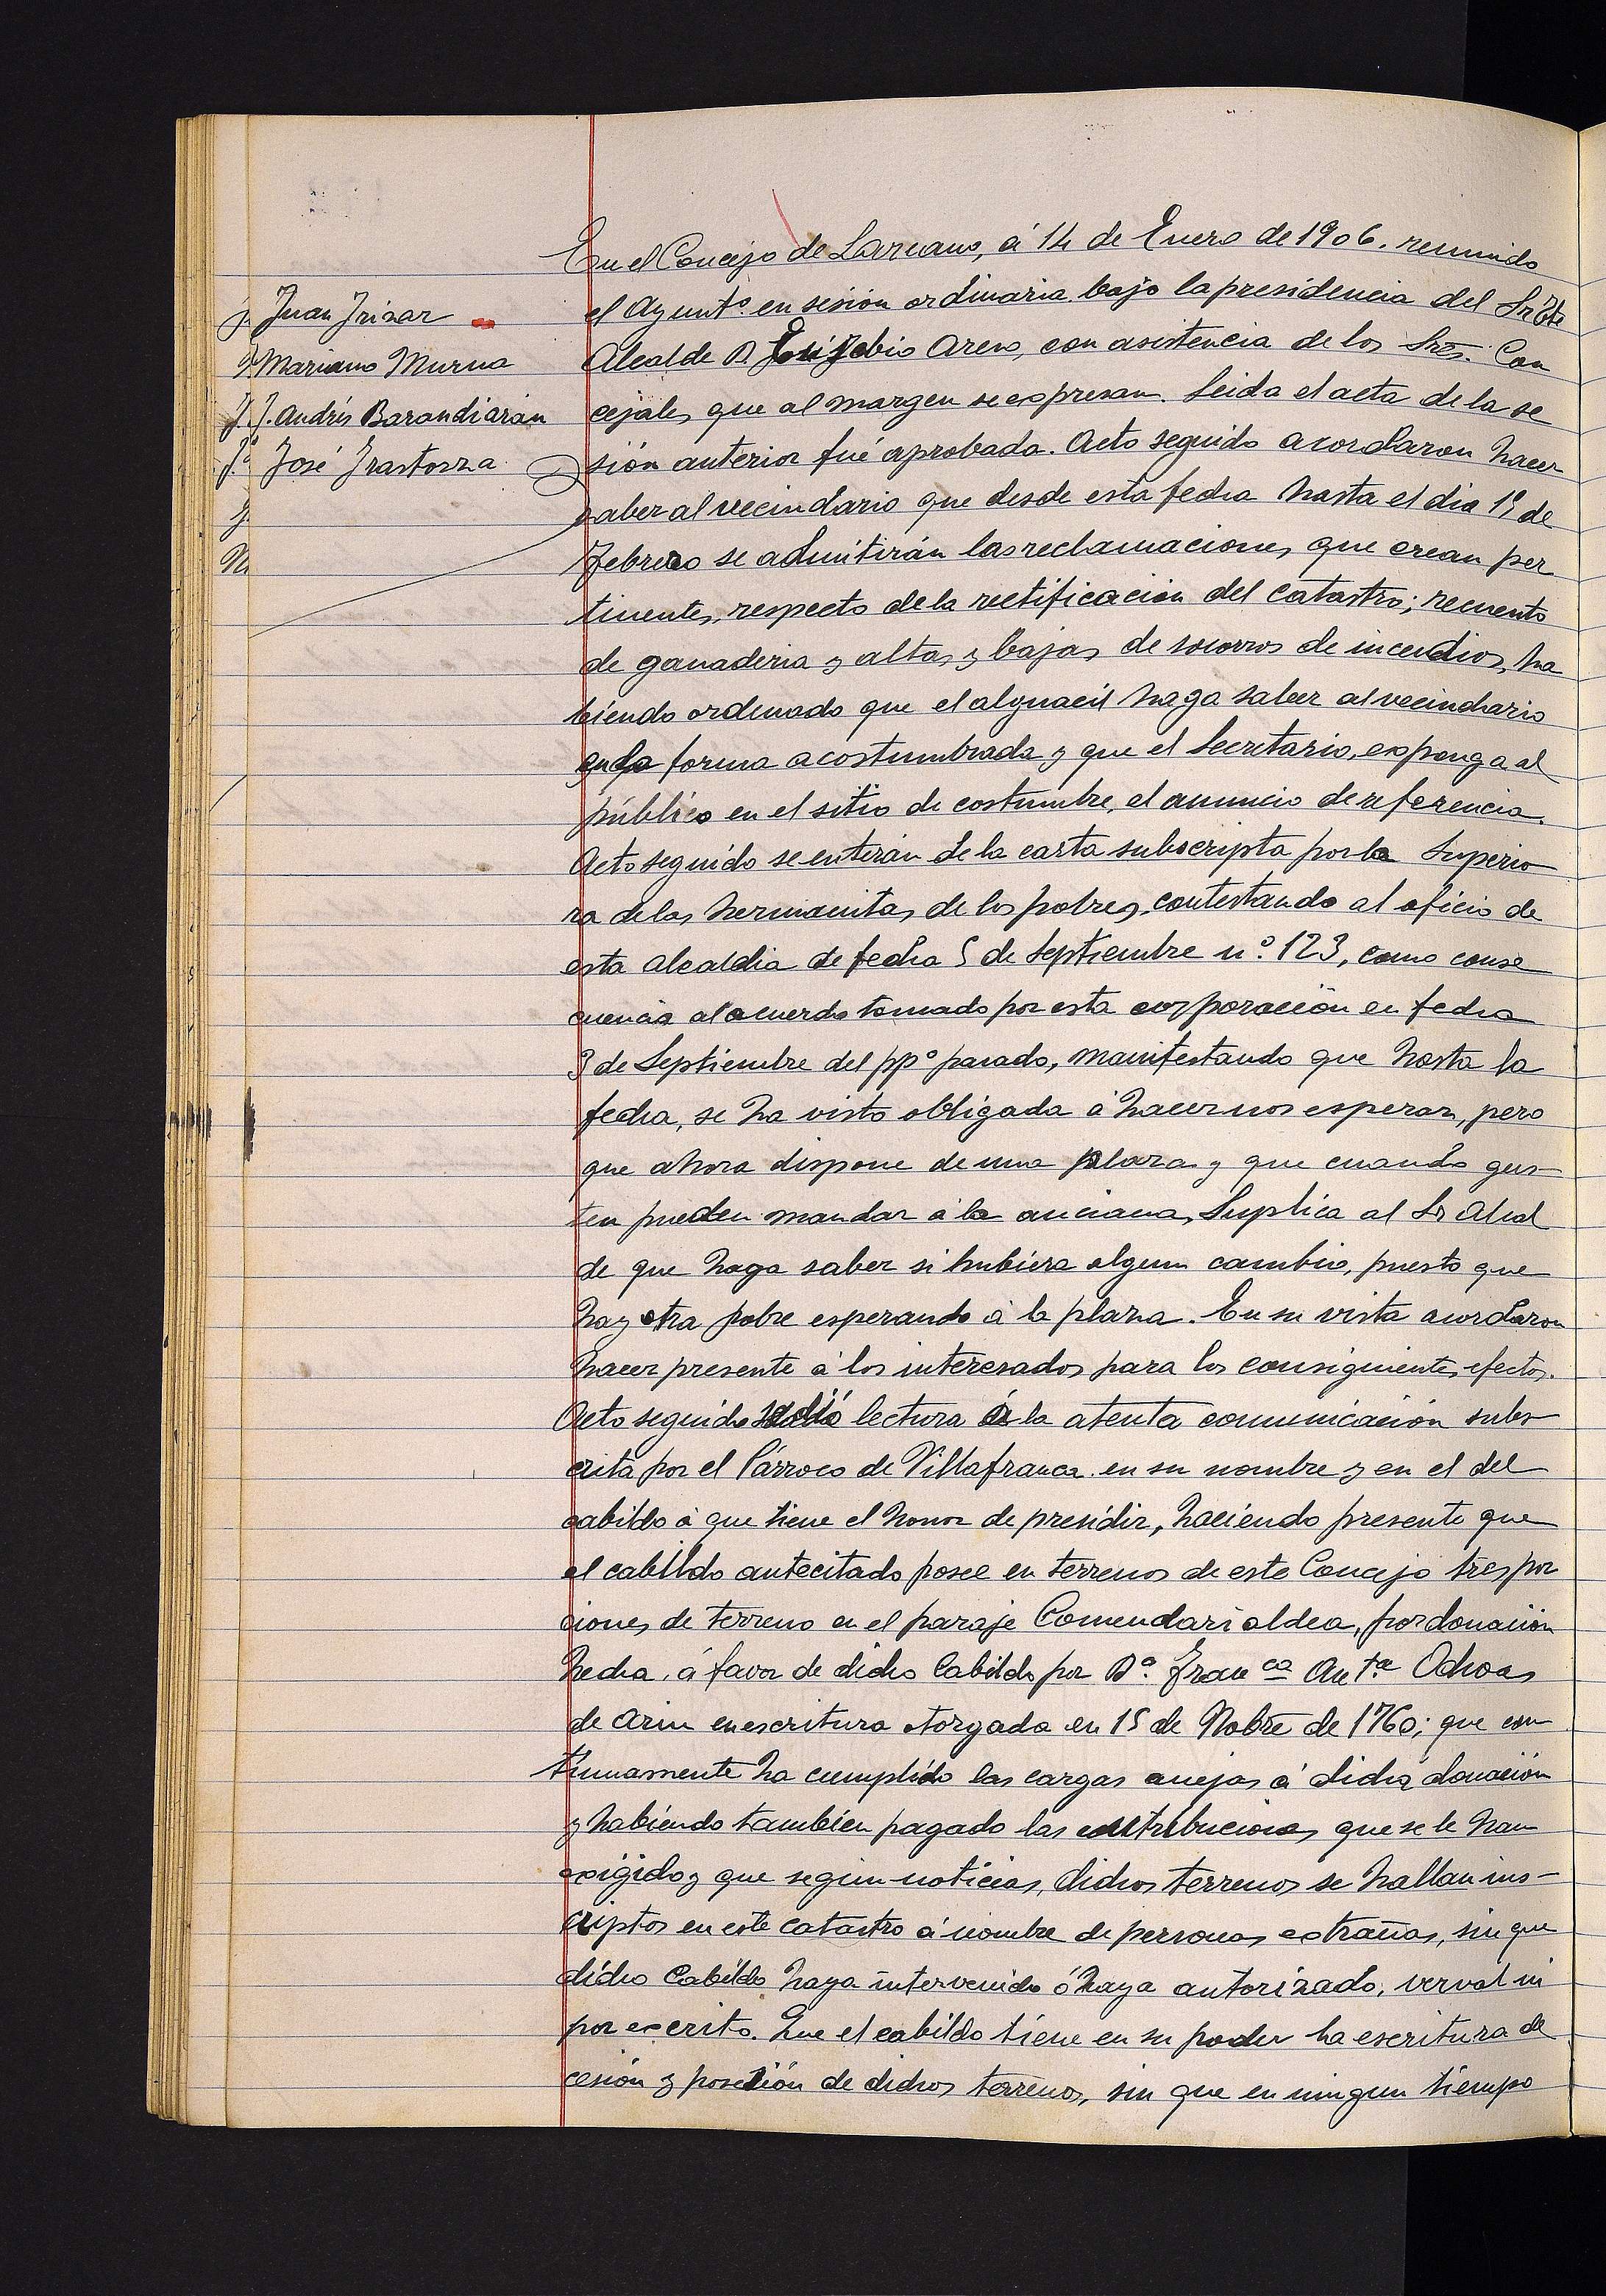 Juan Irizar
Mariano Murua
J. Andrés Barandiarán
José Irastorza
En el Concejo de Lazcano, á 14 de Enero de 1906. reunido
el Ayuntº. en sesión ordinaria bajo la presidencia del Sr Tte
Alcalde D. Eusebio Areso, con asistencia de los Sres. Con
cejales que al margen se expresan. Leida el acta de la se
sión anterior fué aprobada. Acto seguido acordaron hacer
saber al vecindario que desde esta fecha hasta el dia 1º de
Febrero se admitirán las reclamaciones que crean per
tinentes, respecto de la rectificación del catastro; recuento
de ganaderia y altas y bajas de socorros de incendios, ha
biendo ordenado que el alguacil haga saber al vecindario
en la forma acostumbrada y que el Secretario, exponga al
público en el sitio de costumbre, el anuncio de referencia.
Acto seguido se enterán de la carta subscripta por la Superio
ra de las hermanitas de los pobres, contestando al oficio de
esta alcaldia de fecha 5 de Septiembre nº. 123, como conse
cuencia al acuerdo tomado por esta corporación en fecha
3 de Septiembre del ppº pasado, manifestando que hasta la
fecha, se ha visto obligada á hacernos esperar, pero
que ahora dispone de una plaza y que cuando gus-
ten pueden mandar á la anciana, Suplica al Sr Alcal
de que haga saber si hubiera algun cambio, puesto que
hay otra pobre esperando á la plaza. En su vista acordaron
hacer presente á los interesados para los consiguientes efectos.
Acto seguido se dió lectura á la atenta comunicación subs-
crita por el Párroco de Villafranca en su nombre y en el del
cabildo á que tiene el honor de presidir, haciendo presente que
el cabildo antecitado posee en terrenos de este Concejo tres por
ciones de terreno en el paraje Comendari aldea, por donación
hecha á favor de dicho Cabildo por Dª. Franca Anta Ochoa
de Arin en escritura otorgada en 15 de Nobre de 1760; que con
tinuamente ha cumplido las cargas anejas á dicha donación
y habiendo tambien pagado las contribuciones que se le han
exigido y que segun noticias, dichos terrenos se hallan ins-
criptos en este catastro á nombre de personas extrañas, sin que
dicho Cabildo haya intervenido ó haya autorizado, verval ni
por escrito. Que el cabildo tiene en su poder la escritura de
cesión y posesión de dichos terrenos, sin que en ningun tiempo